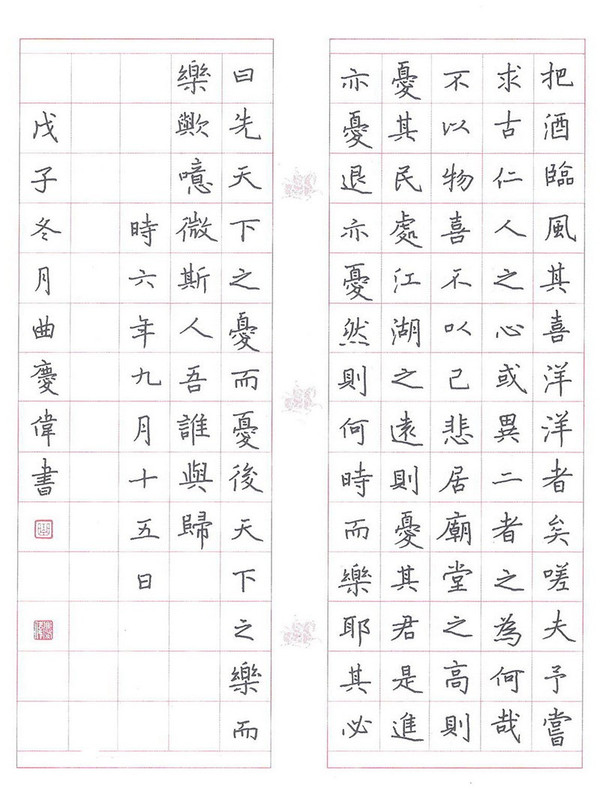 把酒臨風其喜洋洋者矣嗟夫予嘗
求古仁人之心或異二者之為何哉
不以物喜不以己悲居廟堂之高則
憂其民處江湖之遠則憂其君是進
亦憂退亦憂然則何時而樂耶其必
曰先天下之憂而憂後天下之樂而
樂歟噫微斯人吾誰與歸
時六年九月十五日
戊子冬月曲慶偉書